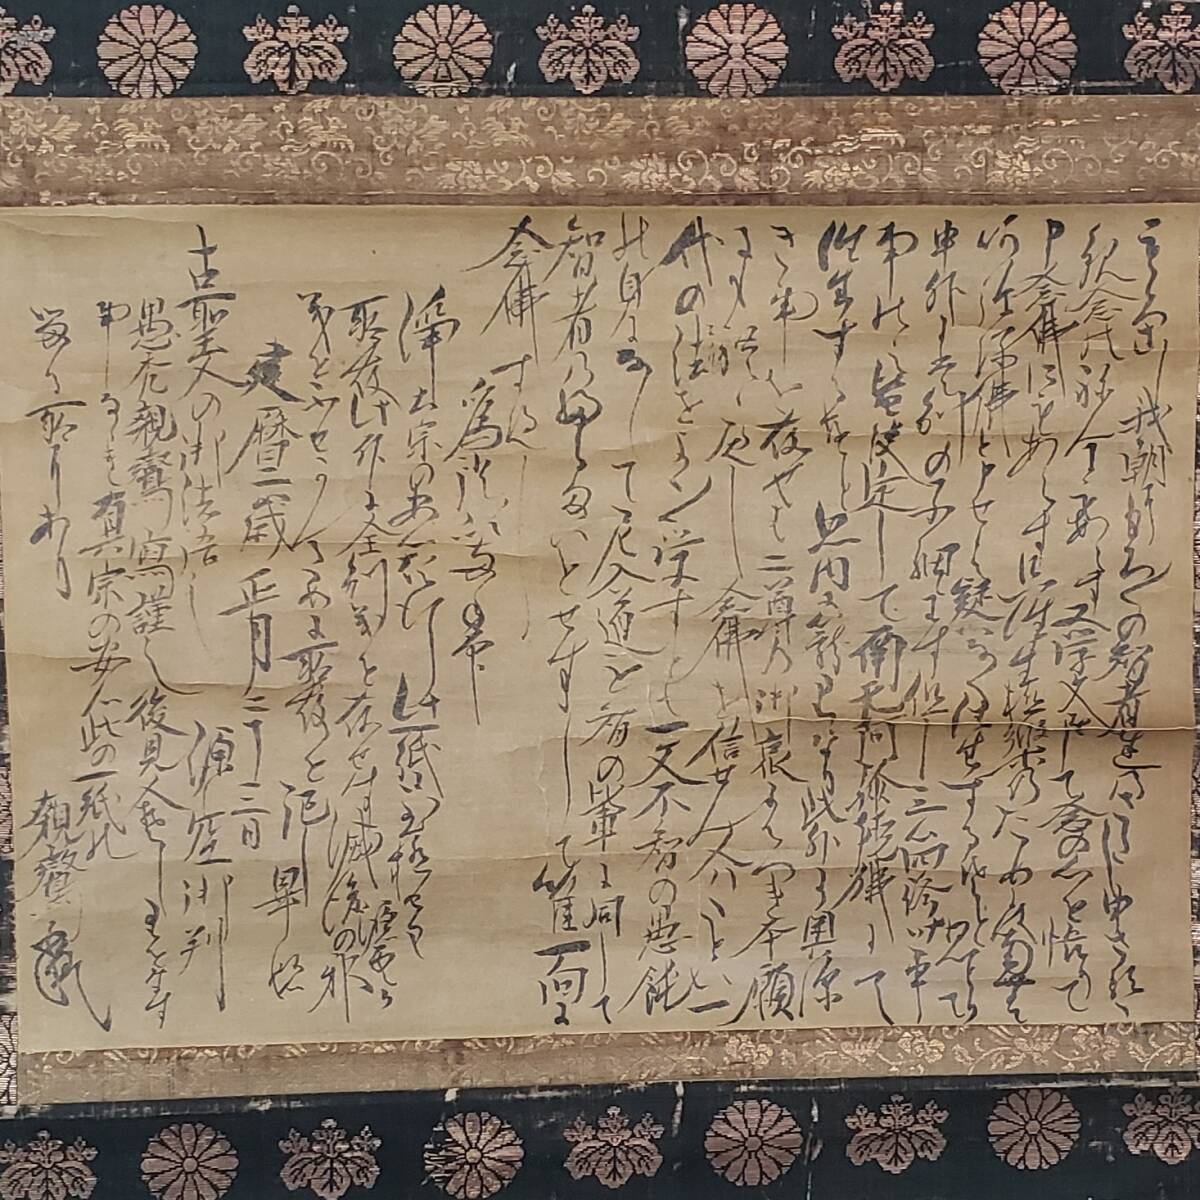 もろこし我朝にもろ〱の智者達のさたし申さるゝ
観念の念にもあらす又学文をして念の心を悟りて
申念佛にもあらす只往生極楽のためには南無
阿弥陀佛と申せは疑なく往生するそと思とりて
申外には別の子細候す但し三心四修と申
事の候は皆決定して南無阿弥陀佛にて
往生するそと思内に籠り候なり此外に奥深
き事を存せは二尊の御哀みにはつれ本願
にもれ候へし念佛を信せん人はたとひ一
代の法をよく〱学すとも一文不智の愚鈍
の身になして尼入道の無智の輩に同して
智者のふるまひをせすして唯一向に
念佛すへし
為證以両手印
浄土宗の安心起行此一紙に至極せり源空か
所存此外に全別義を存せす滅後の邪
義をふせかんかために所存を記畢
建暦二歳正月二十三日
源空御判
右聖人の御法語
愚禿親鸞寫謹 後見人
真宗の安心此の一紙に
留る所なり
親鸞